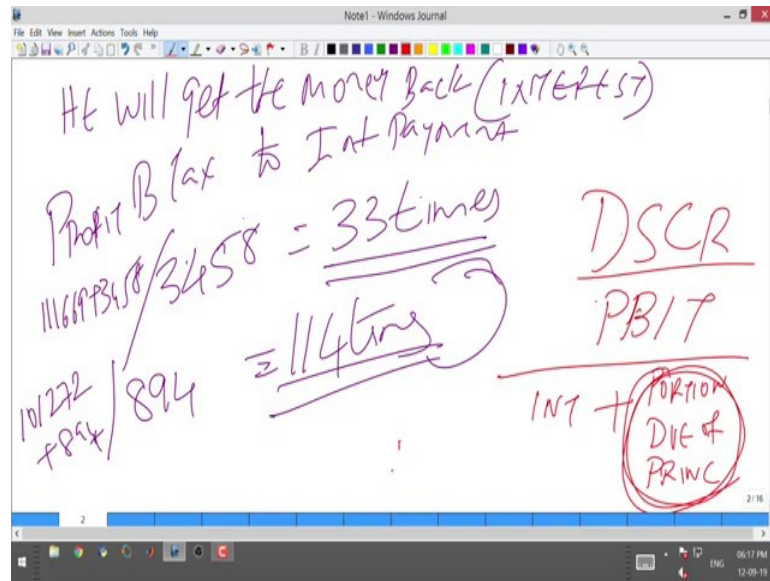 Note1 - Windows Journal
File Edit View Insert Actions Tools Help
HE will get the Money Back (INTEREST)
Profit B Tax to Int Payment
111669+3458/3458 = 33times
101272
+894/894 = 114times
DSCR
PBIT
INT + PORTION
DUE of
PRINC
2/16
2
ENG
06:17 PM
12-09-19